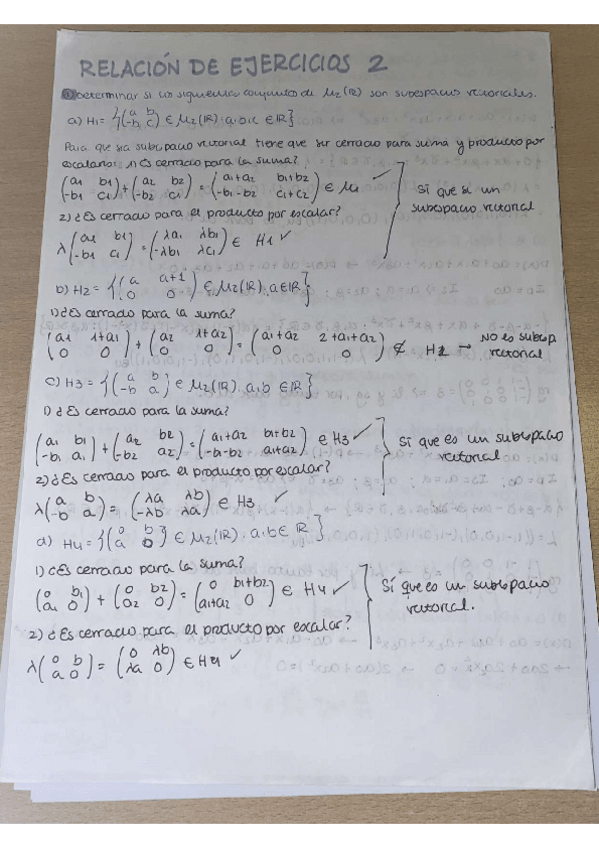 RELACIÓN DE EJERCICIOS 2
① Determinar si los siguientes conjuntos de M₂(ℝ) son subespacios vectoriales.
a) H₁ = {(a b; -b c) ∈ M₂(ℝ): a,b,c ∈ ℝ}
Para que sea subespacio vectorial tiene que ser cerrado para suma y producto por
escalares: 1) ¿Es cerrado para la suma?
(a₁ b₁; -b₁ c₁) + (a₂ b₂; -b₂ c₂) = (a₁+a₂ b₁+b₂; -b₁-b₂ c₁+c₂) ∈ H₁ ✓
2) ¿Es cerrado para el producto por escalar?
λ(a₁ b₁; -b₁ c₁) = (λa₁ λb₁; -λb₁ λc₁) ∈ H₁ ✓
Sí que es un
subespacio vectorial
b) H₂ = {(a a+1; 0 0) ∈ M₂(ℝ): a ∈ ℝ}
1) ¿Es cerrado para la suma?
(a₁ 1+a₁; 0 0) + (a₂ 1+a₂; 0 0) = (a₁+a₂ 2+a₁+a₂; 0 0) ∉ H₂ → No es subesp
vectorial
c) H₃ = {(a b; -b a) ∈ M₂(ℝ): a,b ∈ ℝ}
1) ¿Es cerrado para la suma?
(a₁ b₁; -b₁ a₁) + (a₂ b₂; -b₂ a₂) = (a₁+a₂ b₁+b₂; -b₁-b₂ a₁+a₂) ∈ H₃ ✓
2) ¿Es cerrado para el producto por escalar?
λ(a b; -b a) = (λa λb; -λb λa) ∈ H₃ ✓
Sí que es un subespacio
vectorial
d) H₄ = {(0 b; a 0) ∈ M₂(ℝ): a,b ∈ ℝ}
1) ¿Es cerrado para la suma?
(0 b₁; a₁ 0) + (0 b₂; a₂ 0) = (0 b₁+b₂; a₁+a₂ 0) ∈ H₄ ✓
2) ¿Es cerrado para el producto por escalar?
λ(0 b; a 0) = (0 λb; λa 0) ∈ H₄ ✓
Sí que es un subespacio
vectorial.